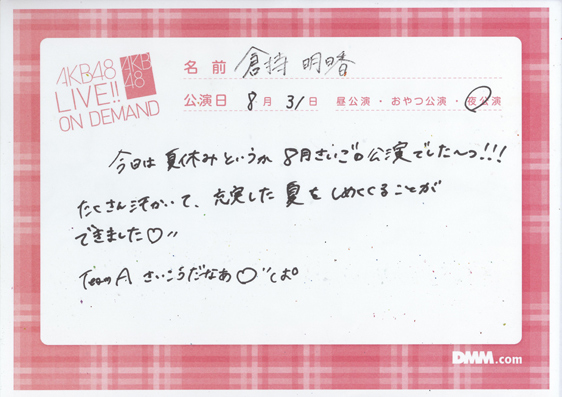 AKB48
LIVE!!
ON DEMAND
AKB
48
名前 倉持 明日香
公演日 8月31日 昼公演・おやつ公演・夜公演
今日は夏休みというか 8月さいごの公演でした〜っ!!!
たくさん汗かいて、充実した夏をしめくくることが
できました♡〃
TeamA さいこうだなあ♡〃
DMM.com